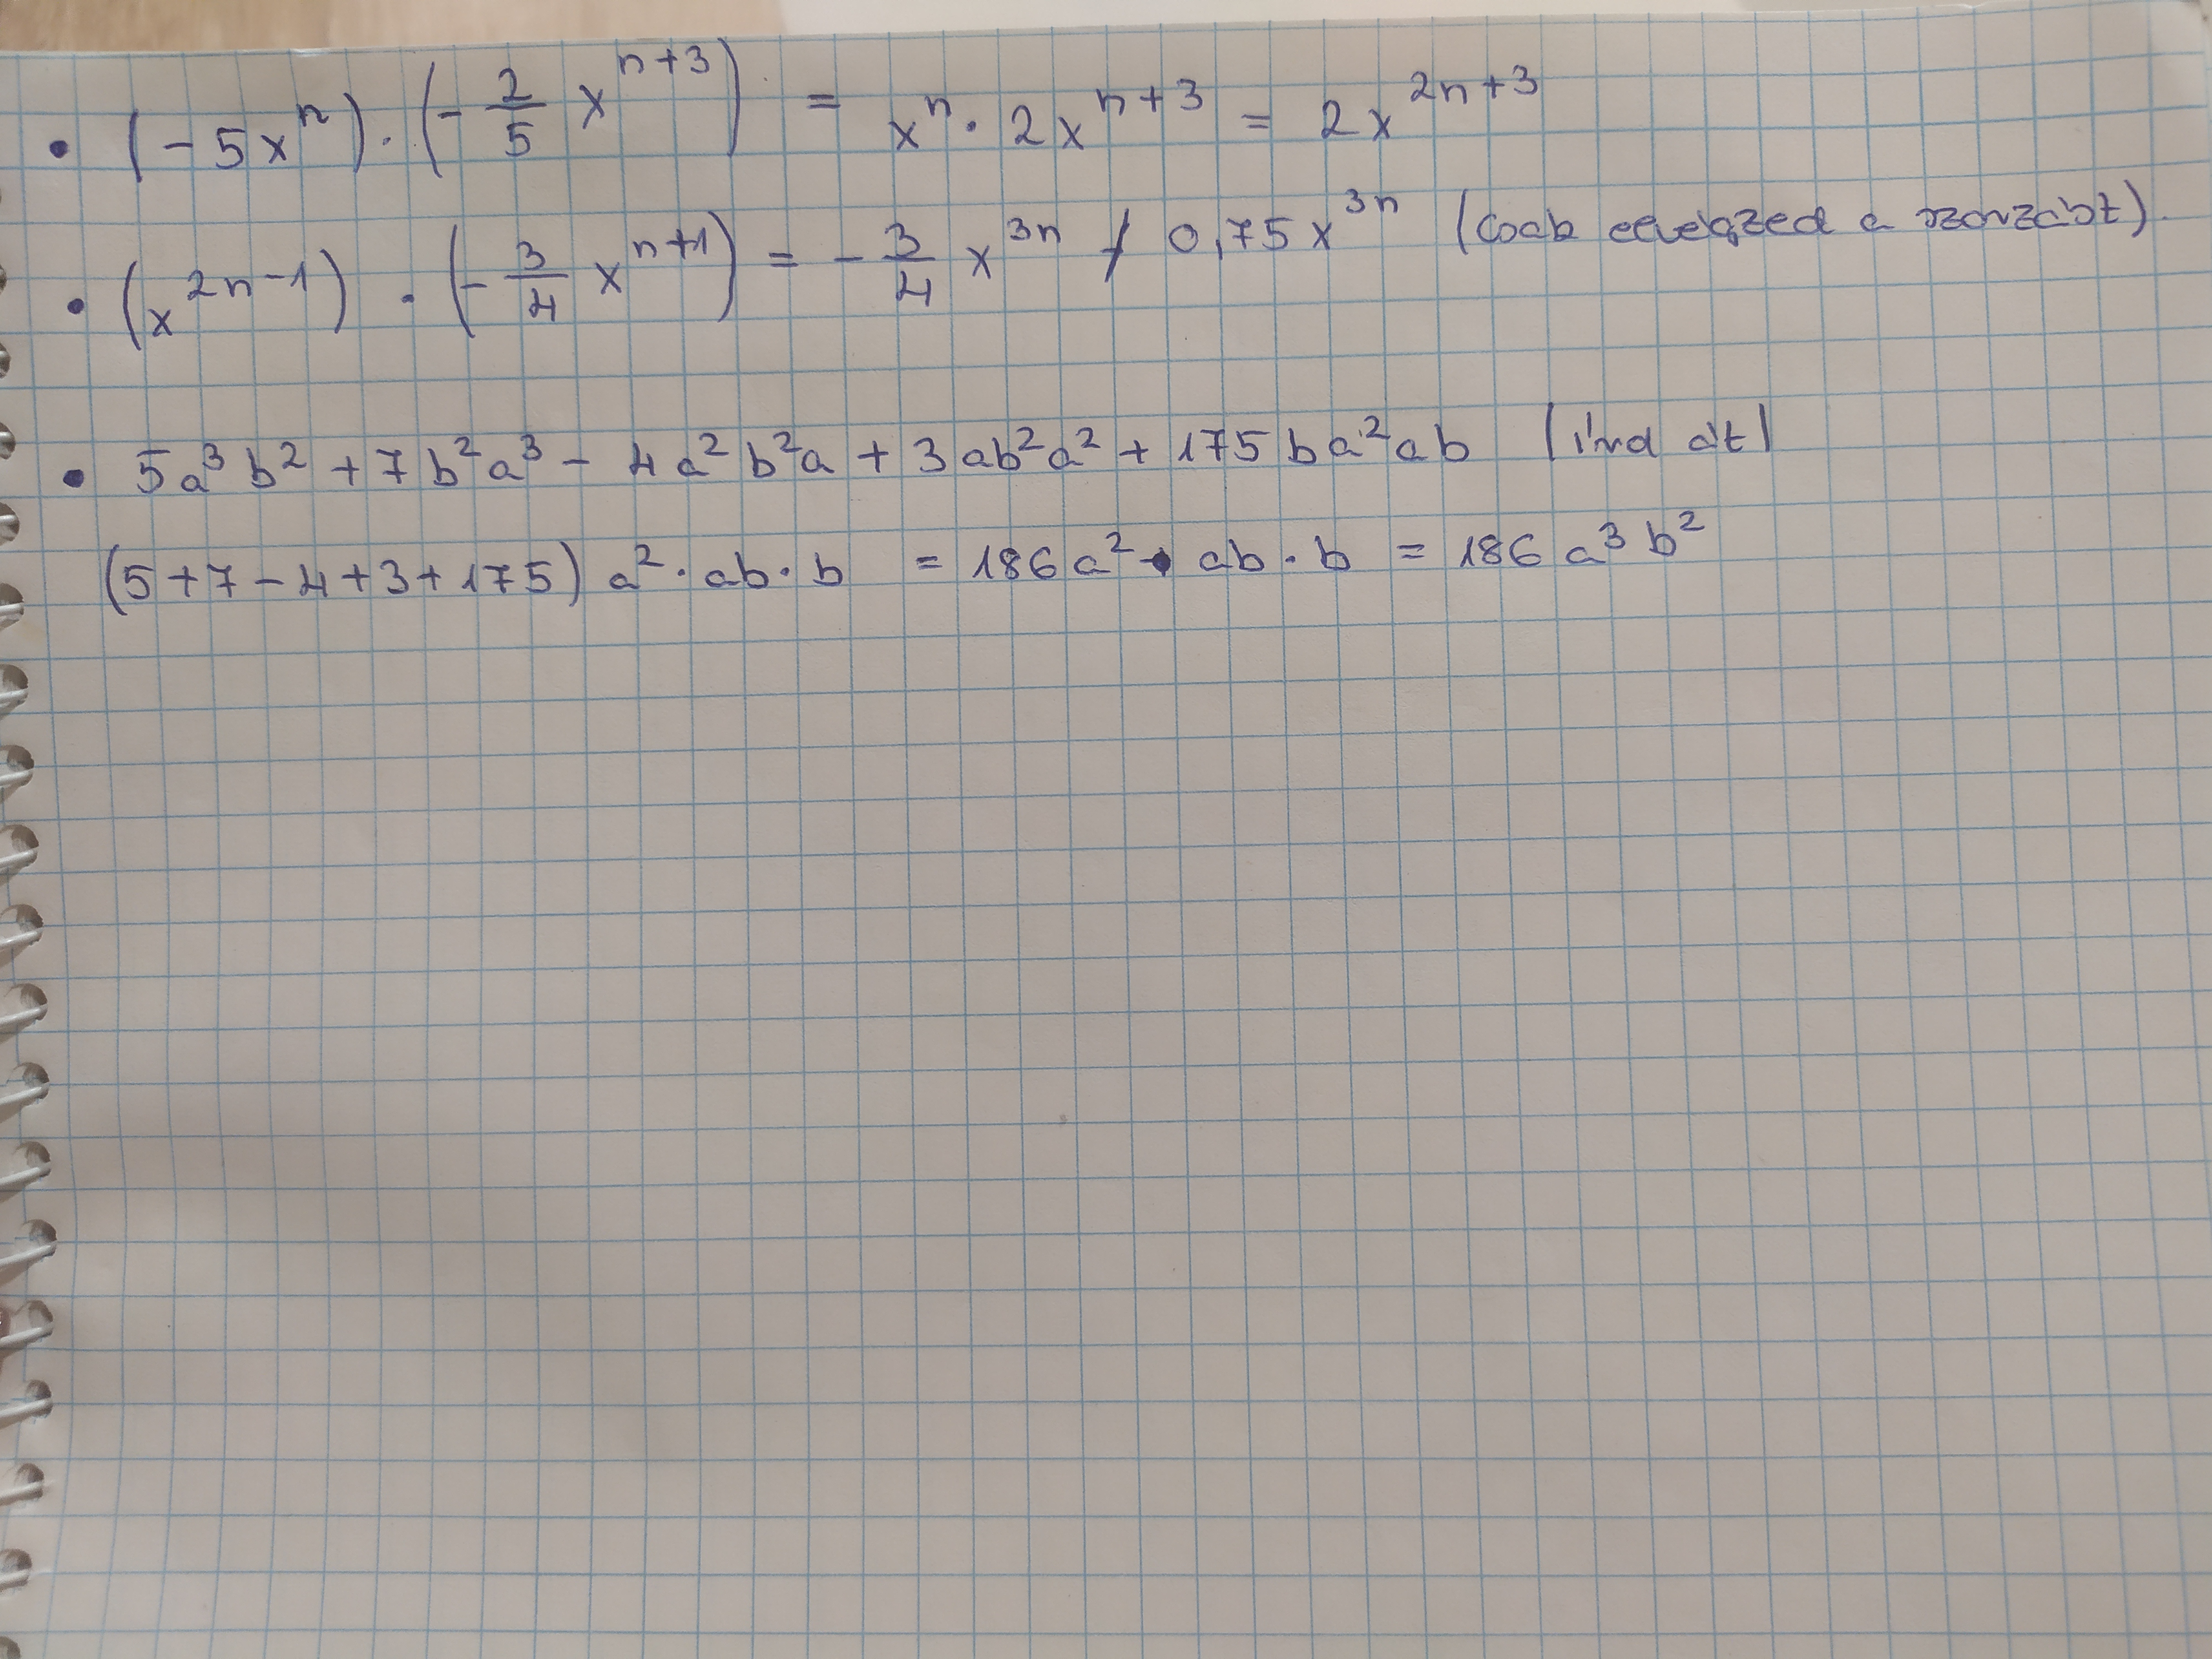 • (-5xⁿ)·(-2/5 xⁿ⁺³) = xⁿ·2xⁿ⁺³ = 2x²ⁿ⁺³
• (x²ⁿ⁻¹)·(-3/4 xⁿ⁺¹) = -3/4 x³ⁿ / 0,75x³ⁿ (csak elvégzed a szorzást)
• 5a³b² + 7b²a³ - 4a²b²a + 3ab²a² + 175ba²ab (írd át)
(5+7-4+3+175) a²·ab·b = 186a²·ab·b = 186a³b²